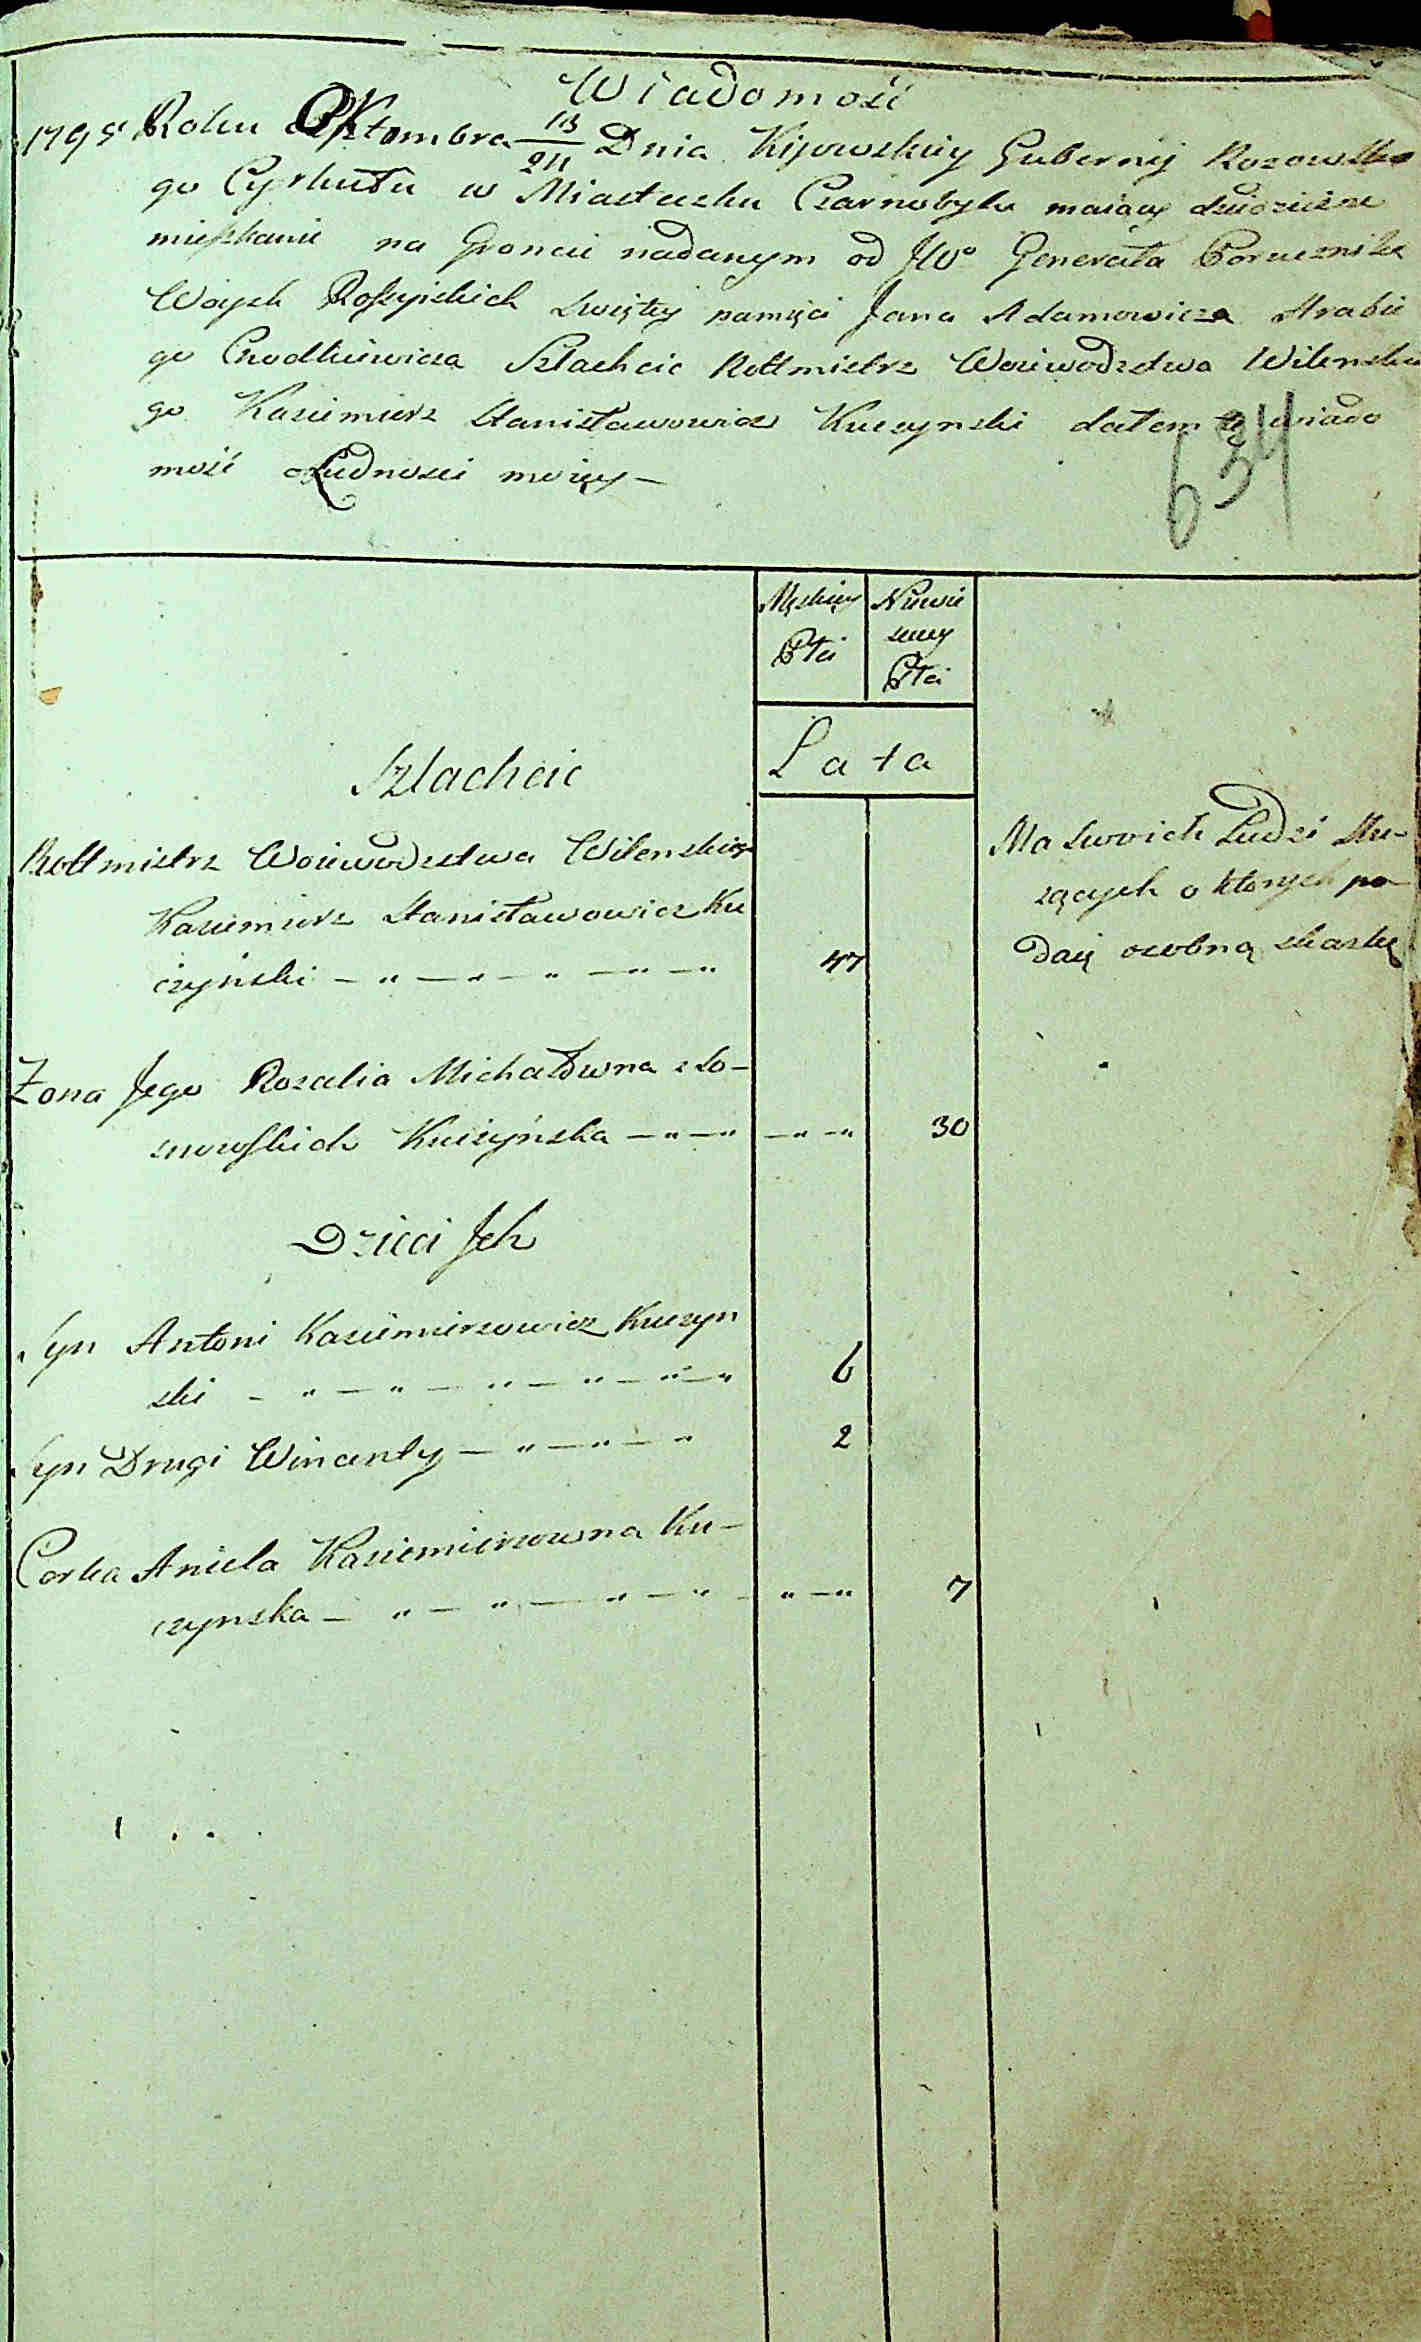 Wiadomość
1795 Roku Oktombra 13/24 Dnia Kijowskiey Gubernij Rozowskie
go Cyrkułu w Miasteczku Czarnobylu maiący dziedziczne
mięszkanie na Groncie nadanym od JWo Generała Porucznika
Woysk Rossyiskich Swiętey pamięci Jana Adamowicza Hrabie
go Chodkiewicza Szlachcic Rottmistrz Woiewodztwa Wilenskie
go Kazimierz Stanisławowicz Kuczynski dałem tę wiado
mość o Ludnosci moiey —
634
Męskiey Płci
Niewie
sciey
Płci
Lata
Szlachcic
Rottmistrz Woiewodztwa Wilenskiego
Kazimierz Stanisławowicz Ku
czyński — " — " — " — " — " 47
Ma Swoich Ludzi Słu-
żących o ktorych po-
daię osobną skaskę
Żona Jego Rozalia Michałowna z So-
snowskich Kuczyńska — " — " — " — " 30
Dzieci Jch
Syn Antoni Kazimierzowicz Kuczyn
ski — " — " — " — " — " — " 6
Syn Drugi Wincenty — " — " — " 2
Corka Aniela Kazimierzowna Ku-
czynska — " — " — " — " — " — " 7